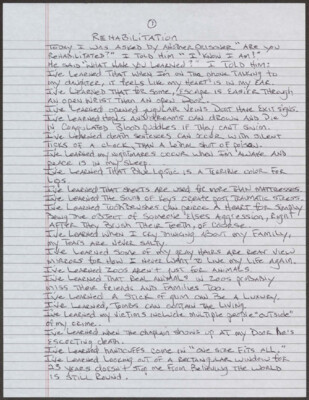 ①
REHABILITATION
TODAY I WAS ASKED BY ANOTHER PRISONER "ARE YOU
REHABILITATED?" I TOLD HIM "I KNOW I AM!"
HE SAID "WHAT HAVE YOU LEARNED?" I TOLD HIM:
I'VE LEARNED THAT WHEN I'M ON THE PHONE TALKING TO
MY DAUGHTER, IT FEELS LIKE MY HEART IS IN MY EAR.
I'VE LEARNED THAT FOR SOME, ESCAPE IS EASIER THROUGH
AN OPEN WRIST THAN AN OPEN DOOR.
I'VE LEARNED OPENED JUGULAR VEINS DON'T HAVE EXIT SIGNS.
I'VE LEARNED HOPES AND DREAMS CAN DROWN AND DIE
IN COAGULATED BLOOD PUDDLES IF THEY CAN'T SWIM.
I'VE LEARNED DEATH SENTENCES CAN OCCUR WITH SILENT
TICKS OF A CLOCK, THAN A LETHAL SHOT OF POISON.
I'VE LEARNED MY NIGHTMARES OCCUR WHEN I'M AWAKE AND
PEACE IS IN MY SLEEP.
I'VE LEARNED THAT BLUE LIPSTIC IS A TERRIBLE COLOR FOR
LIPS.
I'VE LEARNED THAT SHEETS ARE USED FOR MORE THAN MATTRESSES.
I'VE LEARNED THE SOUND OF KEYS CREATE POST TRAMATIC STRESS.
I'VE LEARNED TOOTHBRUSHES CAN PIERCE A HEART FOR SIMPLY
BEING THE OBJECT OF SOMEONE ELSES AGGRESSION, RIGHT
AFTER THEY BRUSH THEIR TEETH, OF COURSE.
I'VE LEARNED WHEN I CRY THINKING ABOUT MY FAMILY,
MY TEARS ARE NEVER SALTY.
I'VE LEARNED SOME OF MY GRAY HAIRS ARE REAR VIEW
MIRRORS FOR HOW I NEVER WANT TO LIVE MY LIFE AGAIN.
I'VE LEARNED ZOOS AREN'T JUST FOR ANIMALS.
I'VE LEARNED THAT REAL ANIMALS IN ZOOS PROBABLY
MISS THEIR FRIENDS AND FAMILIES TOO.
I'VE LEARNED A STICK OF GUM CAN BE A LUXURY.
I'VE LEARNED, TOMBS CAN CONTAIN THE LIVING.
I'VE LEARNED MY VICTIMS INCLUDE MULTIPLE PEOPLE "OUTSIDE"
OF MY CRIME.
I'VE LEARNED WHEN THE CHAPLAIN SHOWS UP AT MY DOOR HE'S
ESCORTING DEATH.
I'VE LEARNED HANDCUFFS COME IN "ONE SIZE FITS ALL."
I'VE LEARNED LOOKING OUT OF A RECTANGULAR WINDOW FOR
23 YEARS DOESN'T STOP ME FROM BELIEVING THE WORLD
IS STILL ROUND.